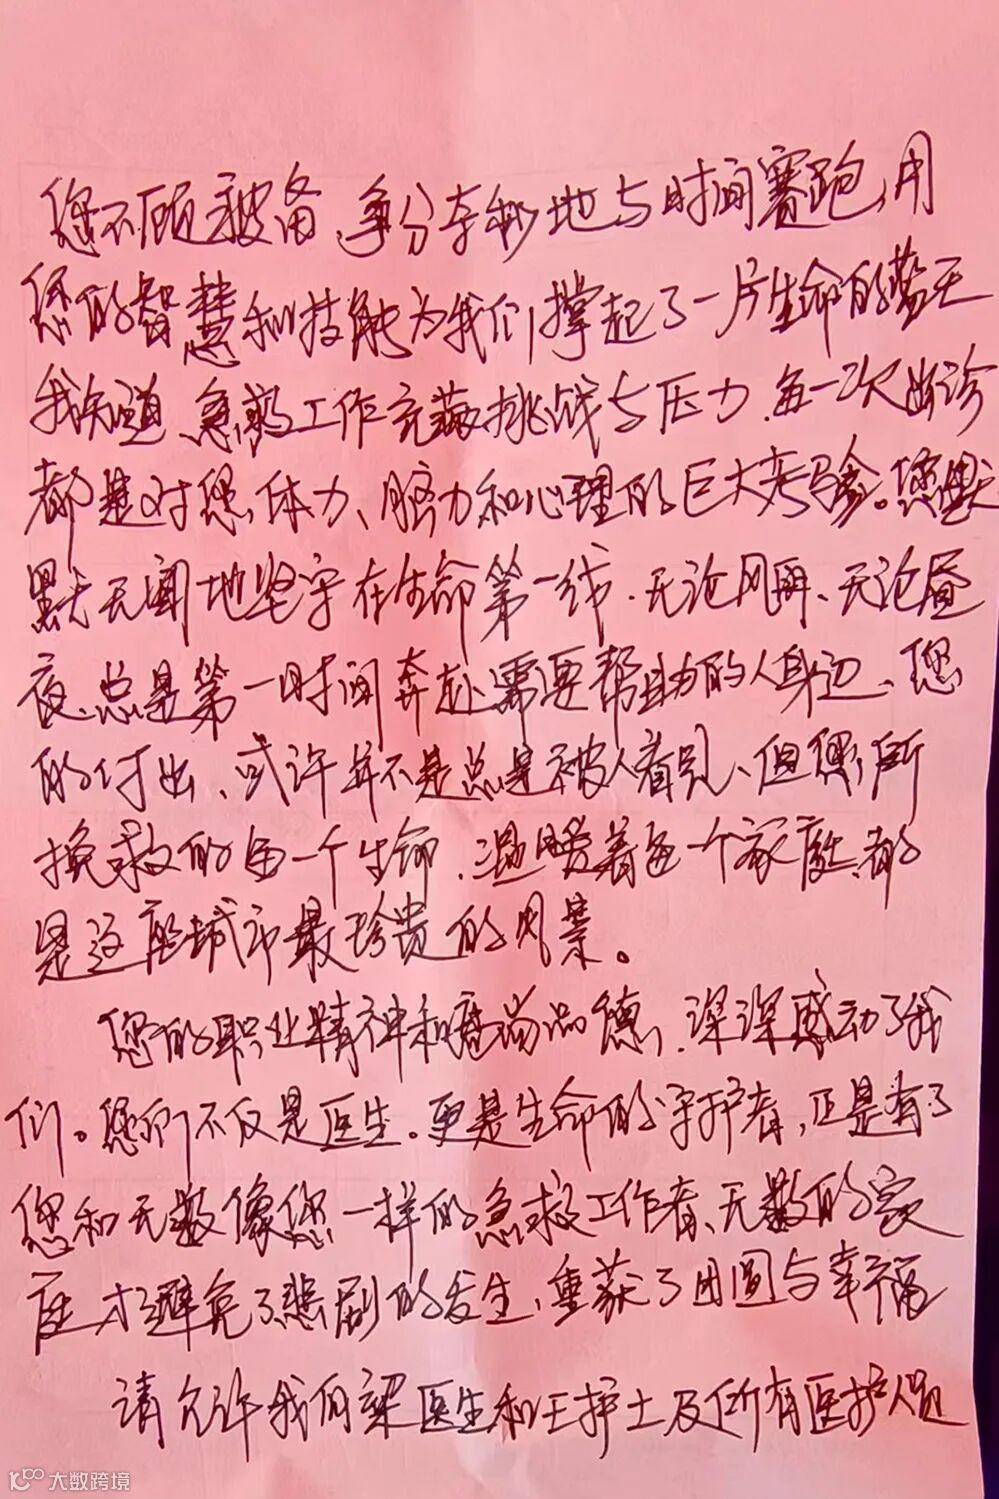 您不顾疲备、争分夺秒地与时间赛跑,用
您的智慧和技能为我们撑起了一片生命的蓝天
我知道、急救工作充满挑战与压力、每一次出诊
都是对您体力、脑力和心理的巨大考验。您默
默无闻地坚守在生命第一线、无论风雨、无论昼
夜、总是第一时间奔赴需要帮助的人身边、您
的付出、或许并不是总是被人看见、但您所
挽救的每一个生命、温暖着每一个家庭、都
是这座城市最珍贵的风景。
您的职业精神和高尚品德、深深感动了我
们。您们不仅是医生。更是生命的守护者,正是有了
您和无数像您一样的急救工作者、无数的家
庭才避免了悲剧的发生、重获了团圆与幸福
请允许我向梁医生和王护士及所有医护人员
大数跨境